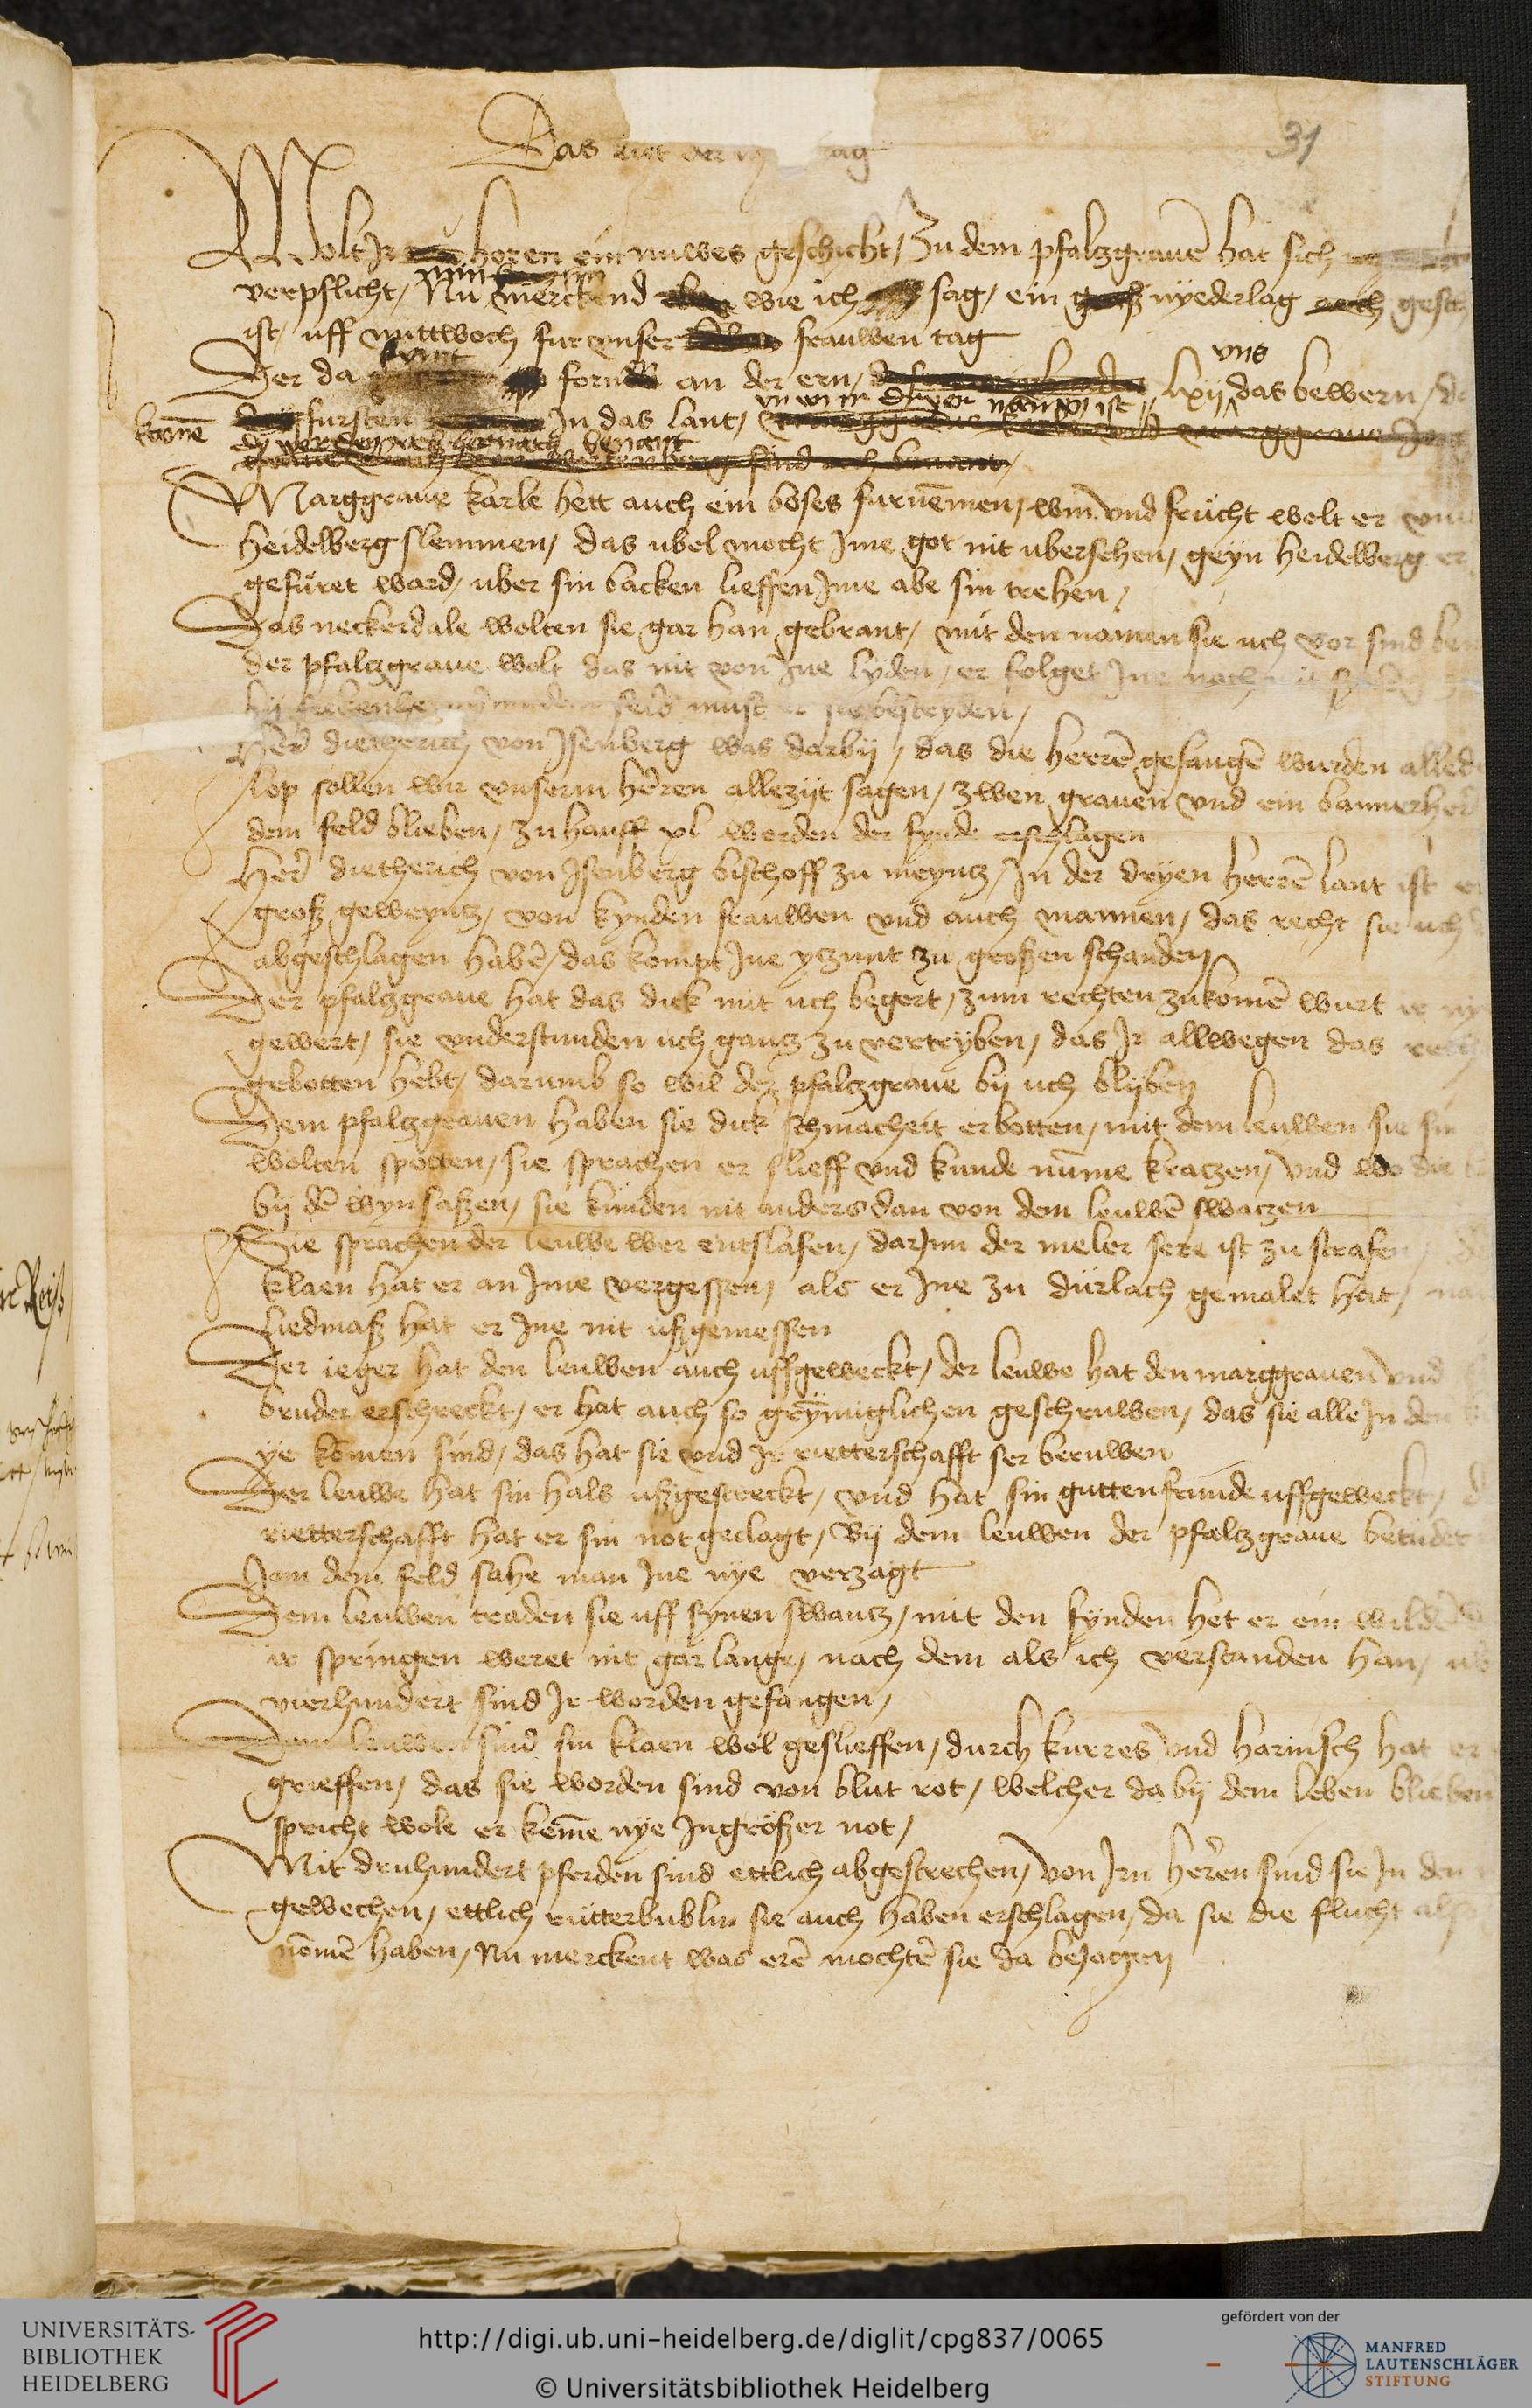 Das
31
Wolt Ir horen ein nuwes geschicht, Zu dem pfaltzgrauē hat sich
verpflicht, Nu merckend wie ich sag, ein nyederlag gesch
ist, uff mittwoch fur vnser frauwen tag
Der da an der ern, lxij vns das bewern,
komē fursten In das lant,
Marggraue karle hett auch ein boses furnēmen, win vnd frücht wolt er vm
heidelberg slemmen, das ubel mocht Ime got nit ubersehen, geyn heidelberg er
gefüret ward, uber sin backen lieffen Ime abe sin trehen,
Das neckerdale wolten sie gar han gebrant, mit den namen sie uch vor sind ben
der pfaltzgraue wolt das nit von Ine lyden, er folget Ine nach
feld must er sie bestryden,
Her diether von Isenberg was darby, das die herrē gefangē wurden alled
lop sollen wir vnserm herren allezijt sagen, zwen grauen vnd ein bannerher
dem feld blieben, zu hauff xl worden der fynde erschlagen
Her dietherich von Isenberg bischoff zu meyntz, In der dryen herrē lant ist ei
groß geweyntz, von kynden frauwen vnd auch mannen, das recht sie uch
abgeschlagen habē, das kompt Ine yczunt zu großen schanden
Der pfaltzgraue hat das dick mit uch begert, zum rechten zukomē wurt ir ny
gewert, sie vnderstunden uch gantz zu vertryben, das Ir allwegen das rech
gebotten hebt, darumb so wil der pfaltzgraue by uch blyben
Dem pfaltzgrauen haben sie dick schmacheit erbotten, mit dem leuwen sie sin
wolten spotten, sie sprachen er slieff vnd kunde nūme kratzen, vnd wo die
by dē wyn saßen, sie kunden nit anders dan von dem leuwē swaczen
Sie sprachen der leuwe wer entslafen, dar Inn der meler sere ist zu strafen,
klaen hat er an Ime vergessen, als er Ine zu dürlach gemalet hat,
liedmaß hat er Ine nit ußgemessen
Der ieger hat den leuwen auch uffgeweckt, der leuwe hat den marggrauen vnd
bruder erschreckt, er hat auch so grymiglichen geschruwen, das sie alle In den
ye komen sind, das hat sie vnd Ir rietterschafft ser beruwen
Der leuwe hat sin hals ußgestreckt, vnd hat sin gutten frunde uffgeweckt, d
rietterschafft hat er sin not geclagt, By dem leuwen der pfaltzgraue betudet
Inn dem feld sahe man Ine nye verzagt
Dem leuwen traden sie uff synen swantz, mit den fynden het er ein wildē
ir springen weret nit gar lange, nach dem als ich verstanden han,
vierhundert sind Ir worden gefangen,
Dem leuwen sind sin klaen wol geslieffen, durch kurres vnd harnisch hat er
grieffen, das sie worden sind von blut rot, welcher da by dem leben blieben
spricht wole er keme nye In großer not,
Mit druhundert pferden sind ettlich abgestrechen, von Irn herren sind sie In den
gewechen, ettlich rütterbublin sie auch haben erschlagen, da sie die flucht als
nomē haben, Nu merckent was erē mochtē sie da beJagen
UNIVERSITÄTS-
BIBLIOTHEK
HEIDELBERG
http://digi.ub.uni-heidelberg.de/diglit/cpg837/0065
© Universitätsbibliothek Heidelberg
gefördert von der
MANFRED
LAUTENSCHLÄGER
STIFTUNG